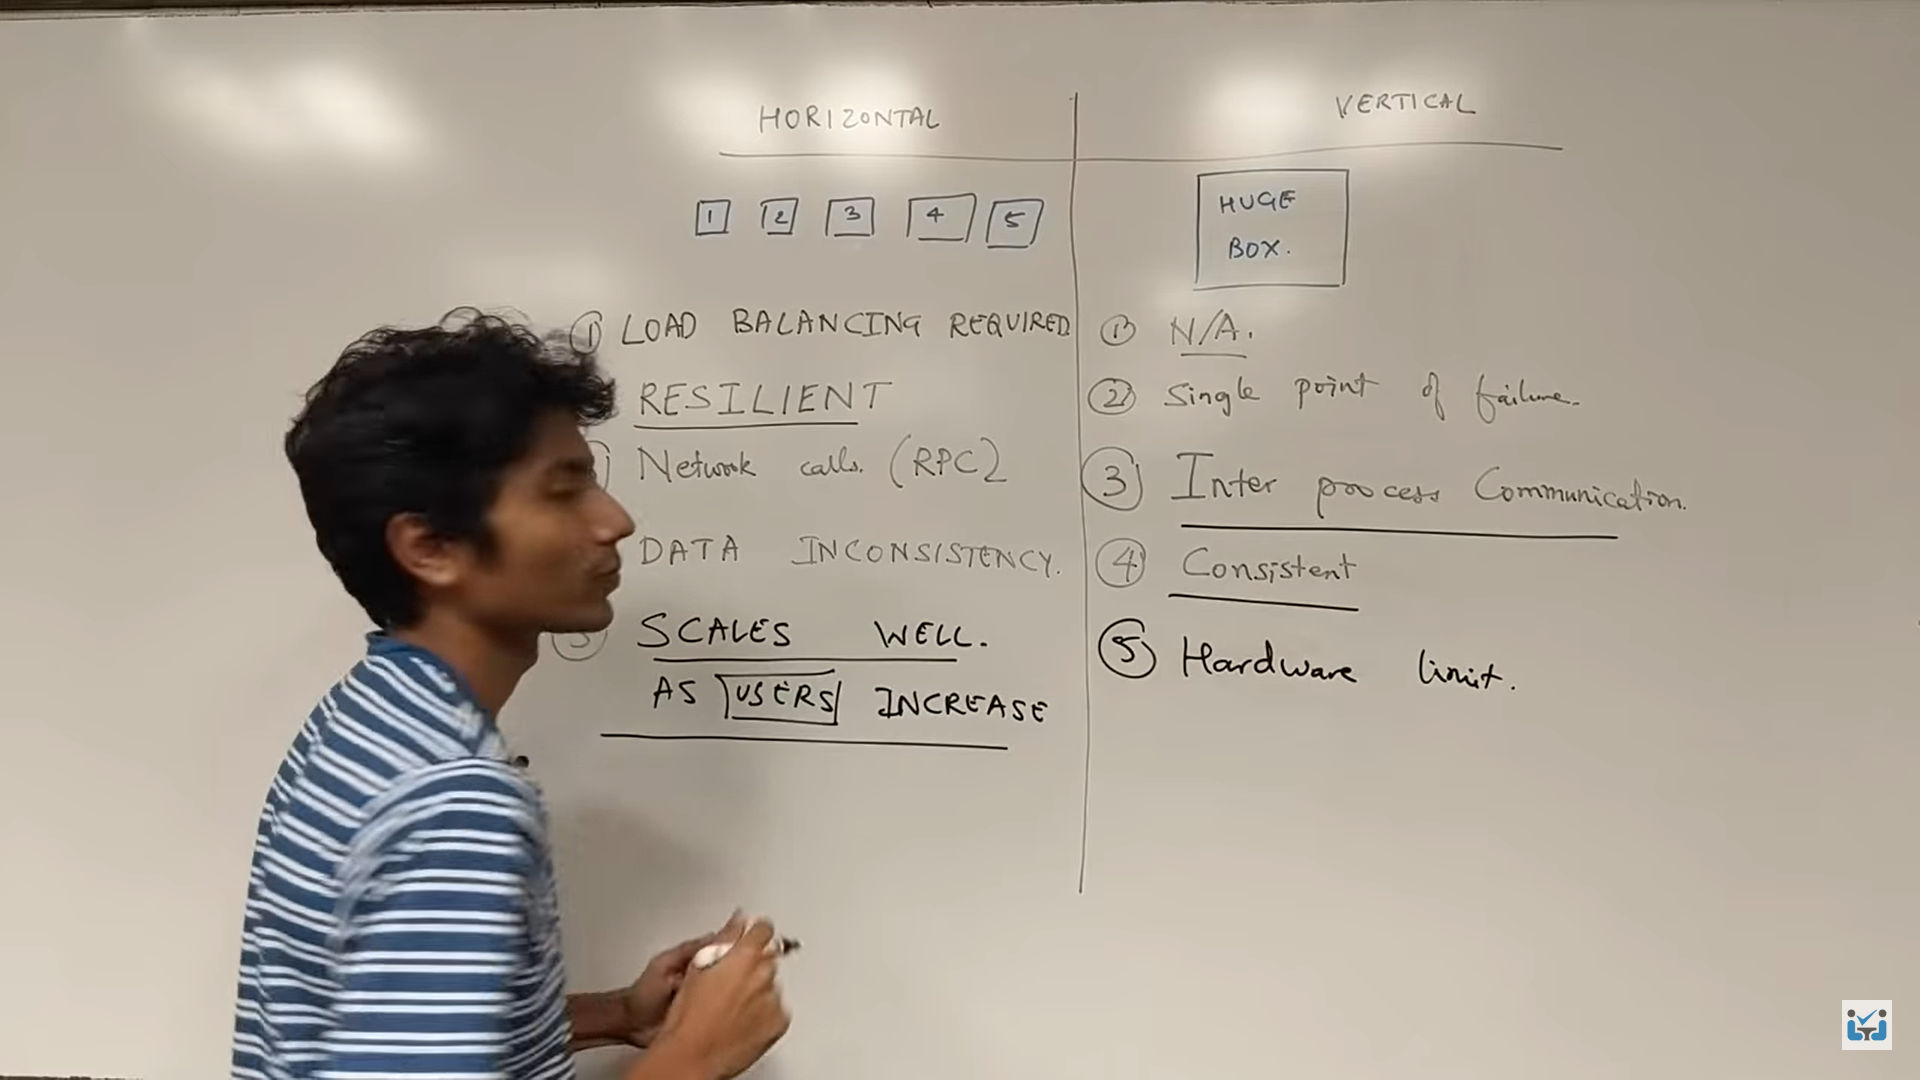 HORIZONTAL
1 2 3 4 5
① LOAD BALANCING REQUIRED
RESILIENT
Network calls. (RPC)
DATA INCONSISTENCY.
5 SCALES WELL.
AS USERS INCREASE
VERTICAL
HUGE
BOX.
① N/A.
② Single point of failure.
③ Inter process Communication.
④ Consistent
⑤ Hardware limit.